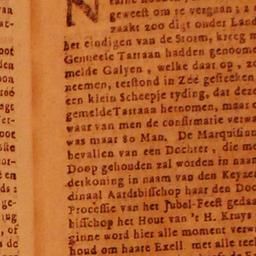 geweest om te vergaan; 2
zaakt zoo digt onder Land
het eindigen van de Storm, kreeg
Genueele Tartaan hadden genoome
melde Galyen, welke daar op, zo
neemen, terstond in Zee gesteeken
een klein Scheepje tyding, dat deze
gemelde Tartaan hernomen, maar
waar van men de confirmatie verwa
was maar 80 Man. De Marquisinn
bevallen van een Dochter, die me
Doop gehouden zal worden in naam
derkoning in naam van den Keyzer
dinaal Aardsbisschop haar den Doo
Processie van het Jubel-Feest gedaa
bisschop het Hout van 't H. Kruys
ginne word hier alle moment verwa
houd om haare Exell. met alle teek